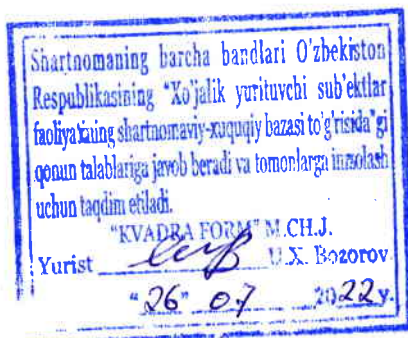 Shartnomaning barcha bandlari O'zbekiston
Respublikasining "Xo'jalik yurituvchi sub'ektlar
faoliyatining shartnomaviy-xuquqiy bazasi to'g'risida"gi
qonun talablariga javob beradi va tomonlarga imzolash
uchun taqdim etiladi.
"KVADRA FORM" M.CH.J.
Yurist U.X. Bozorov
"26" 07 2022 y.